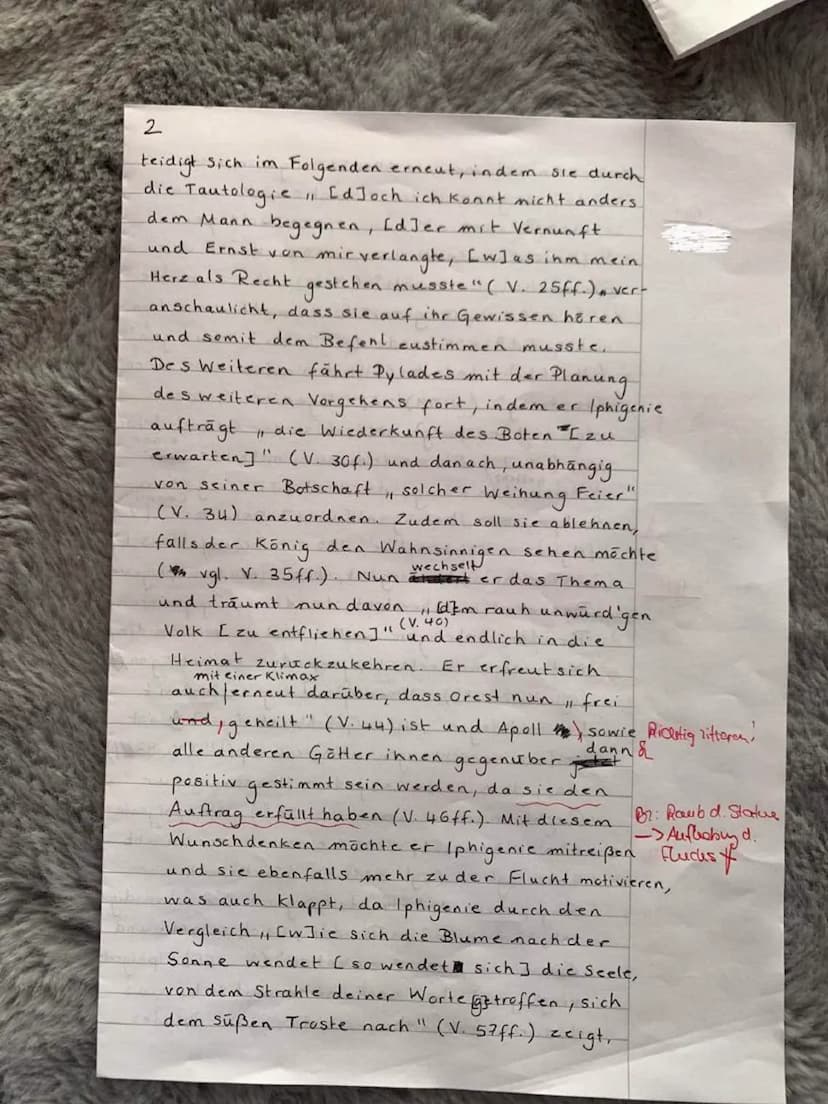 2
teidigt sich im Folgenden erneut, indem sie durch
die Tautologie „[d]och ich konnt nicht anders
dem Mann begegnen, [d]er mit Vernunft
und Ernst von mir verlangte, [w]as ihm mein
Herz als Recht gestehen musste" (V. 25ff.), ver-
anschaulicht, dass sie auf ihr Gewissen hören
und somit dem Befehl zustimmen musste.
Des Weiteren fährt Pylades mit der Planung
des weiteren Vorgehens fort, indem er Iphigenie
aufträgt „die Wiederkunft des Boten [zu
erwarten]" (V. 30f.) und danach, unabhängig
von seiner Botschaft „solcher Weihung Feier"
(V. 34) anzuordnen. Zudem soll sie ablehnen,
falls der König den Wahnsinnigen sehen möchte
(vgl. V. 35ff.). Nun wechselt er das Thema
und träumt nun davon „[d]em rauh unwürd'gen
Volk [zu entfliehen]" (V. 40) und endlich in die
Heimat zurückzukehren. Er erfreut sich
auch mit einer Klimax erneut darüber, dass Orest nun „frei
und, geheilt" (V. 44) ist und Apoll, sowie Richtig zitieren!
alle anderen Götter ihnen gegenüber dann
positiv gestimmt sein werden, da sie den
Auftrag erfüllt haben (V. 46ff.). Mit diesem Bz: Raub d. Statue
Wunschdenken möchte er Iphigenie mitreißen → Aufhebung d.
und sie ebenfalls mehr zu der Flucht motivieren, Fluchs
was auch klappt, da Iphigenie durch den
Vergleich „[w]ie sich die Blume nach der
Sonne wendet [so wendet sich] die Seele,
von dem Strahle deiner Worte getroffen, sich
dem süßen Troste nach" (V. 57ff.) zeigt,